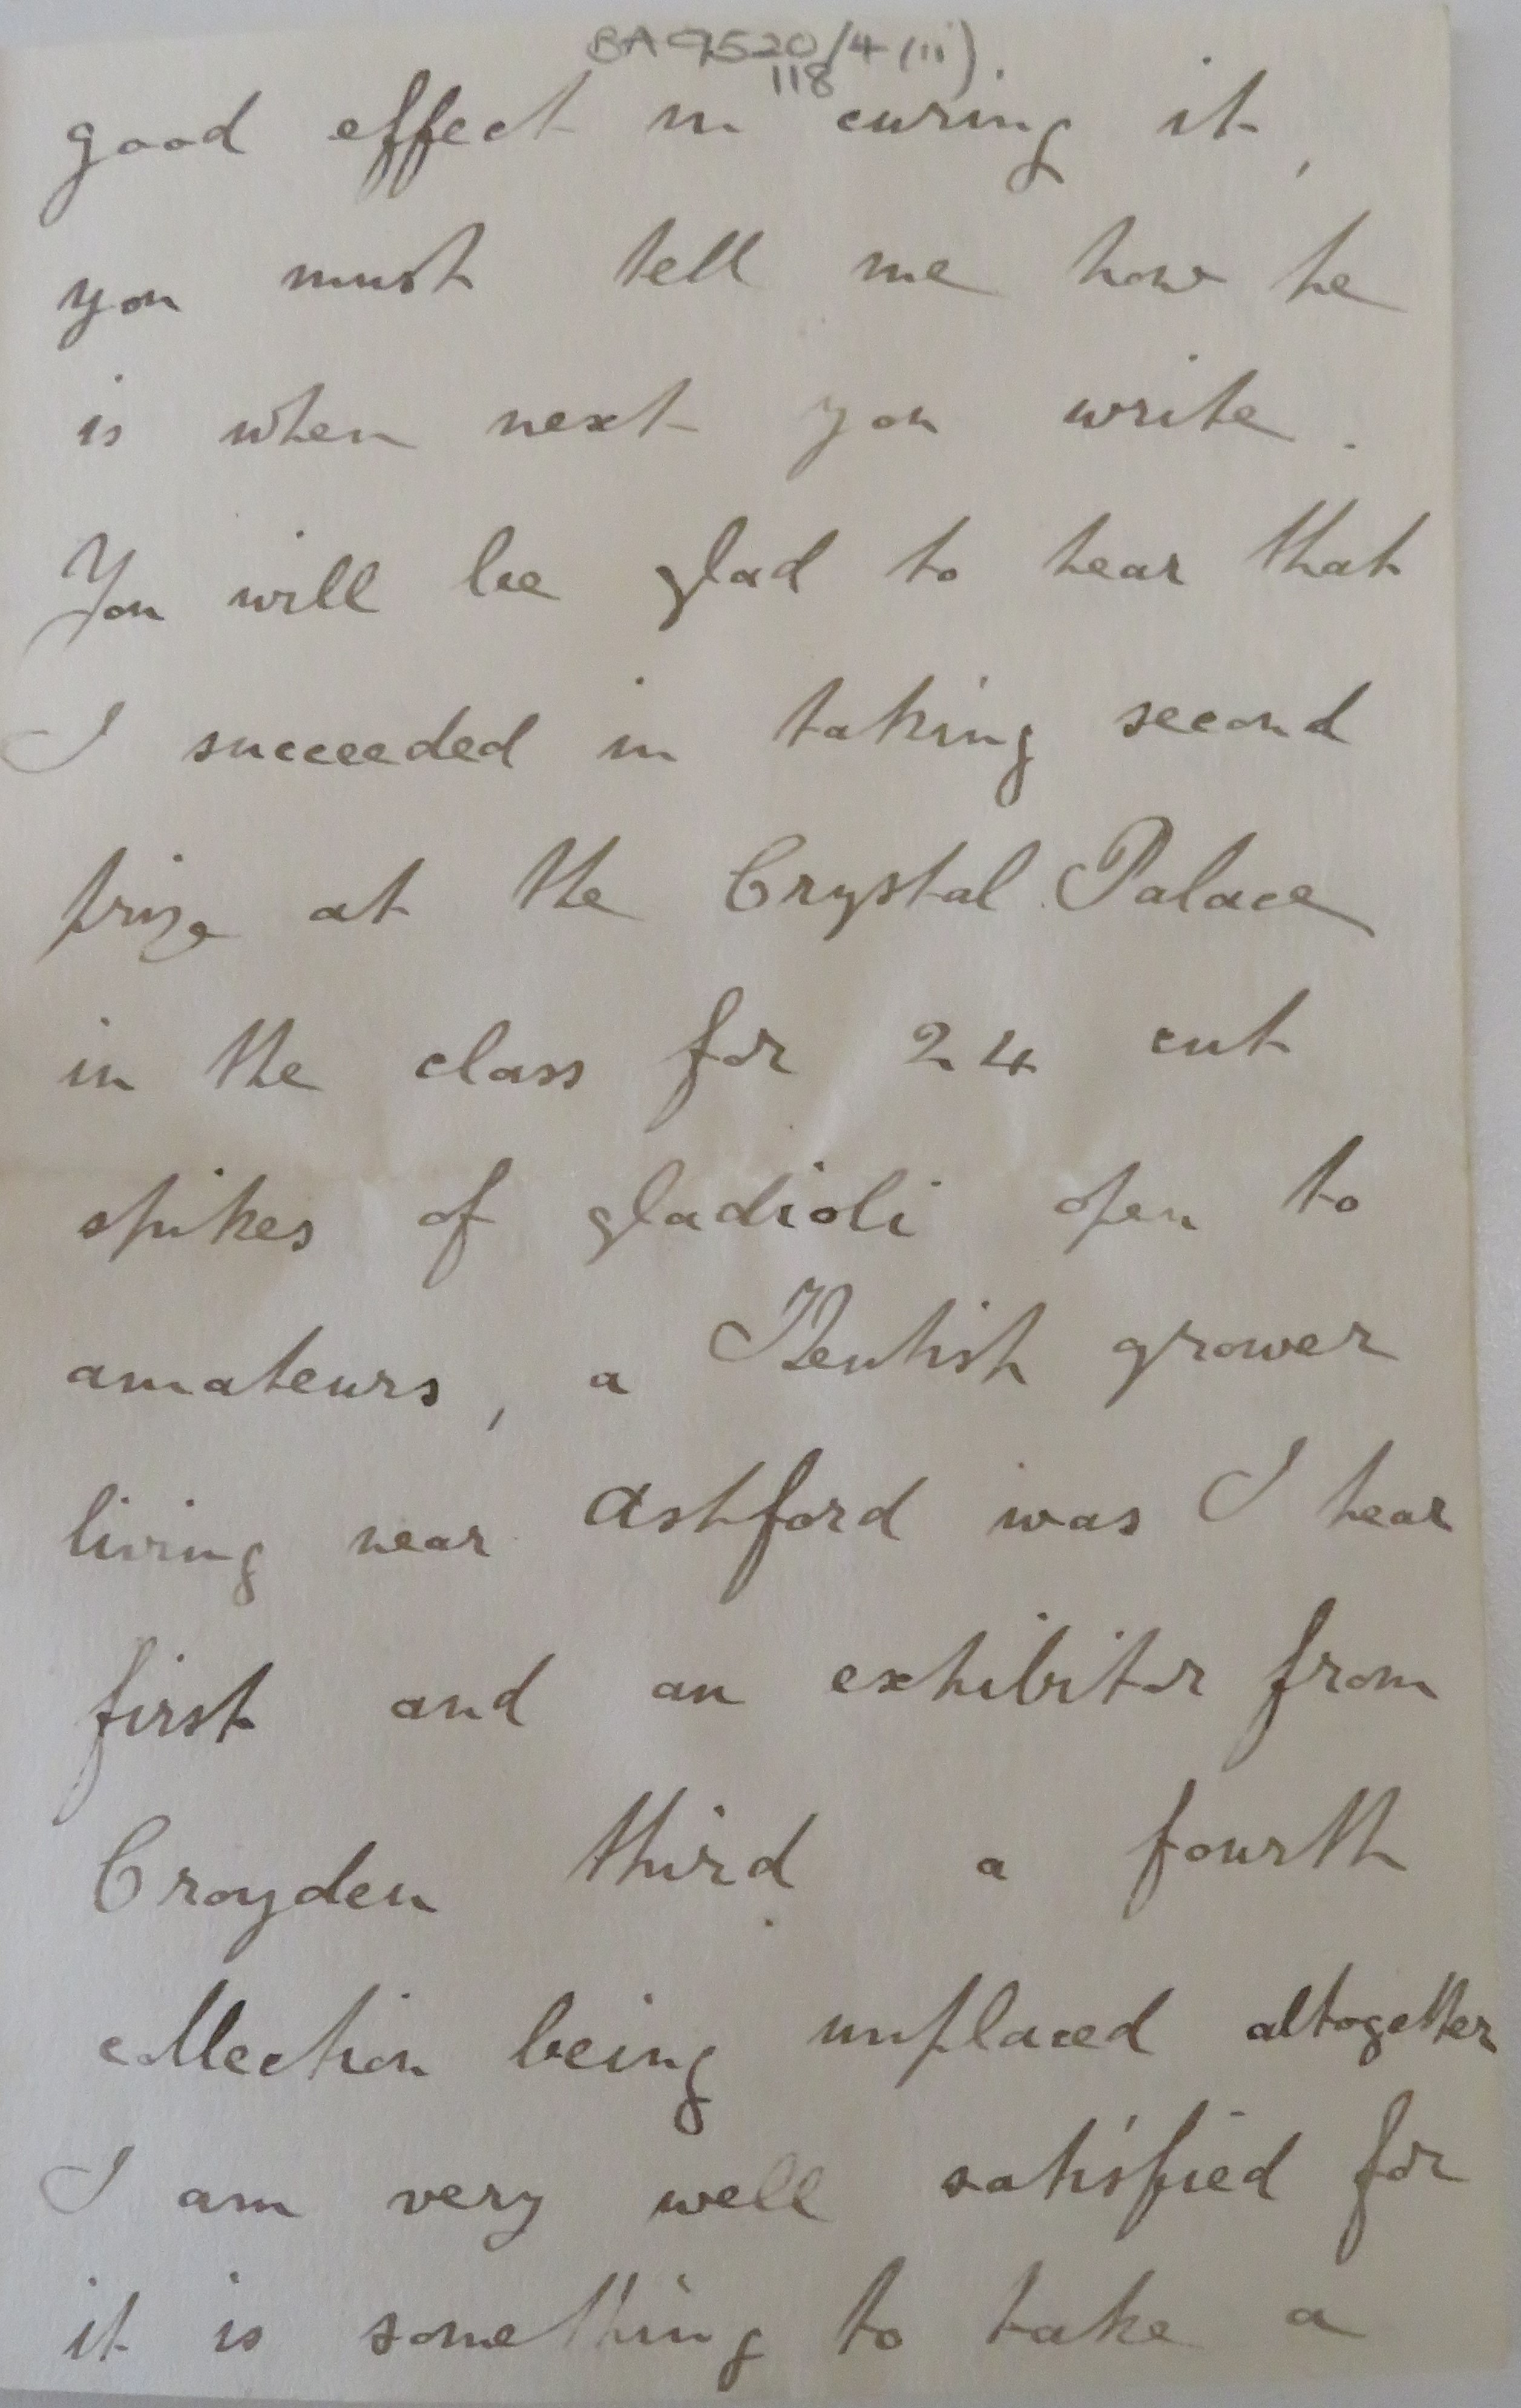 BA 9520/4 (ii).
118
good effect in curing it,
you must tell me how he
is when next you write.
You will be glad to hear that
I succeeded in taking second
prize at the Crystal Palace
in the class for 24 cut
spikes of gladioli open to
amateurs, a Kentish grower
living near Ashford was I hear
first and an exhibitor from
Croyden third a fourth
collection being unplaced altogether
I am very well satisfied for
it is something to take a